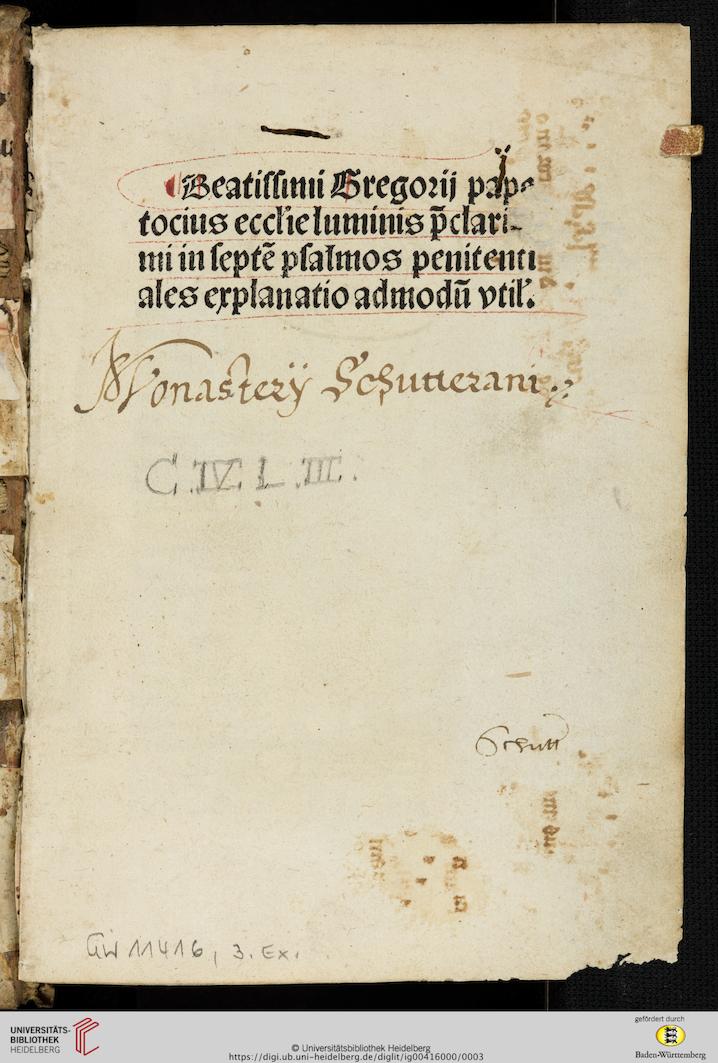 Beatissimi Gregorij pape
tocius eccl'ie luminis p̄clari-
mi in septē psalmos penitenti
ales explanatio admodū vtil'.
Monasterÿ Schutterani
C. IV. L. III.
Schutt
GW 11416, 3. Ex.
UNIVERSITÄTS-
BIBLIOTHEK
HEIDELBERG
© Universitätsbibliothek Heidelberg
https://digi.ub.uni-heidelberg.de/diglit/ig00416000/0003
gefördert durch
Baden-Württemberg